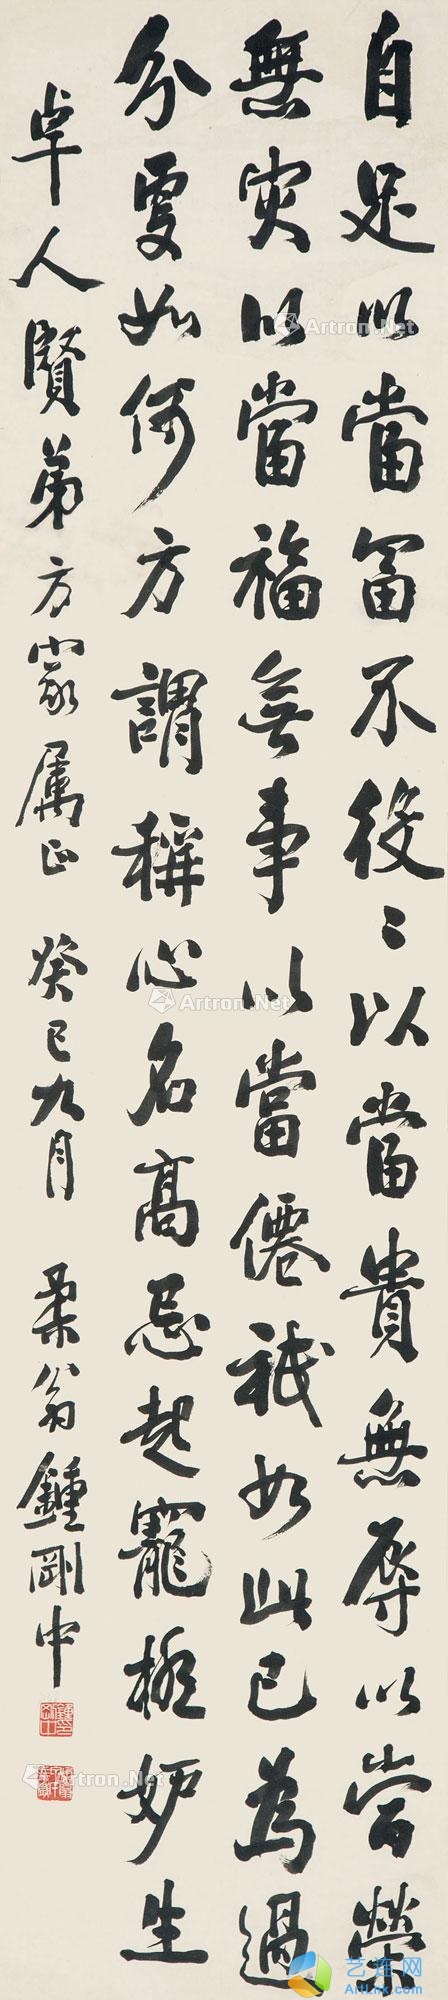 自足以當富不役〻以當貴無辱以當榮
無灾以當福無事以當僊祇如此已為過
分更如何方謂稱心名高忌起寵極妒生
卓人賢弟方家属正 癸巳九月 柔翁鍾剛中
Artron.Net
Artron.Net
Artron.Net
Artron.Net
艺连网
ArtLink.com